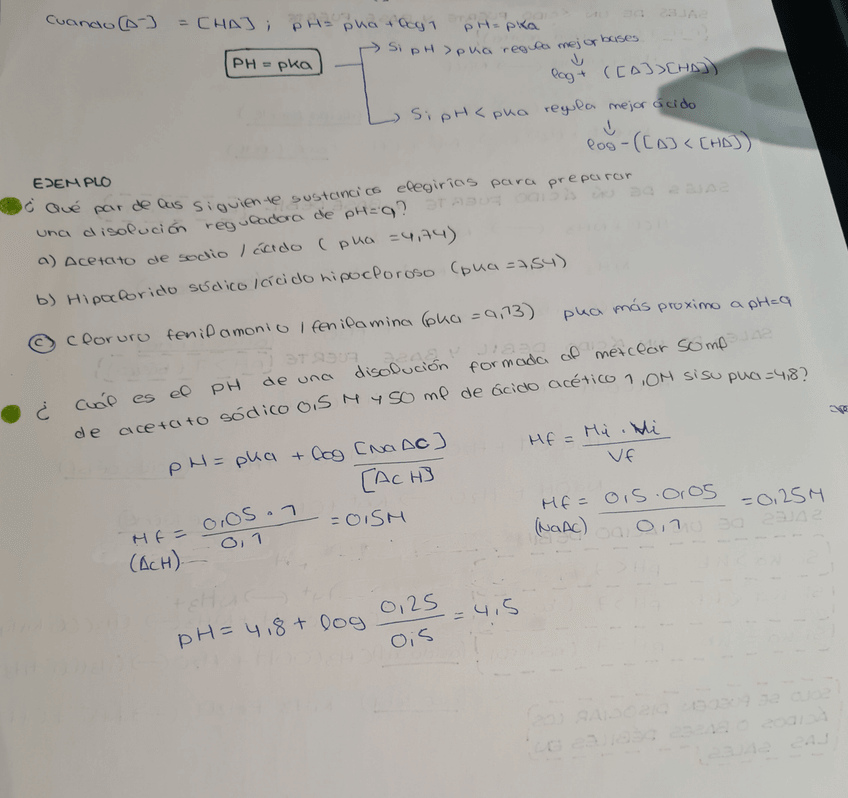 Cuando [A⁻] = [HA] ; pH = pka + log 1 pH = pka
PH = pka
Si pH > pka regula mejor bases
↓
log + ([A] > [HA])
Si pH < pka regula mejor ácido
↓
log - ([A] < [HA])
EJEMPLO
¿ Qué par de las siguiente sustancias elegirías para preparar
una disolución reguladora de pH=9?
a) Acetato de sodio / ácido (pka = 4,74)
b) Hipoclorido sódico / ácido hipocloroso (pka = 7,54)
c) Cloruro fenilamonio / fenilamina (pka = 9,73) pka más proximo a pH=9
¿ Cuál es el pH de una disolución formada al mezclar 50ml
de acetato sódico 0,5 M y 50 ml de ácido acético 1,0M si su pka = 4,8?
pH = pka + log [NaAC] / [AcH]
Mf = Mi . Vi / Vf
Mf = 0,05 · 1 / 0,1 = 0,5M
(AcH)
Mf = 0,5 · 0,05 / 0,1 = 0,25M
(NaAc)
pH = 4,8 + log 0,25 / 0,5 = 4,5